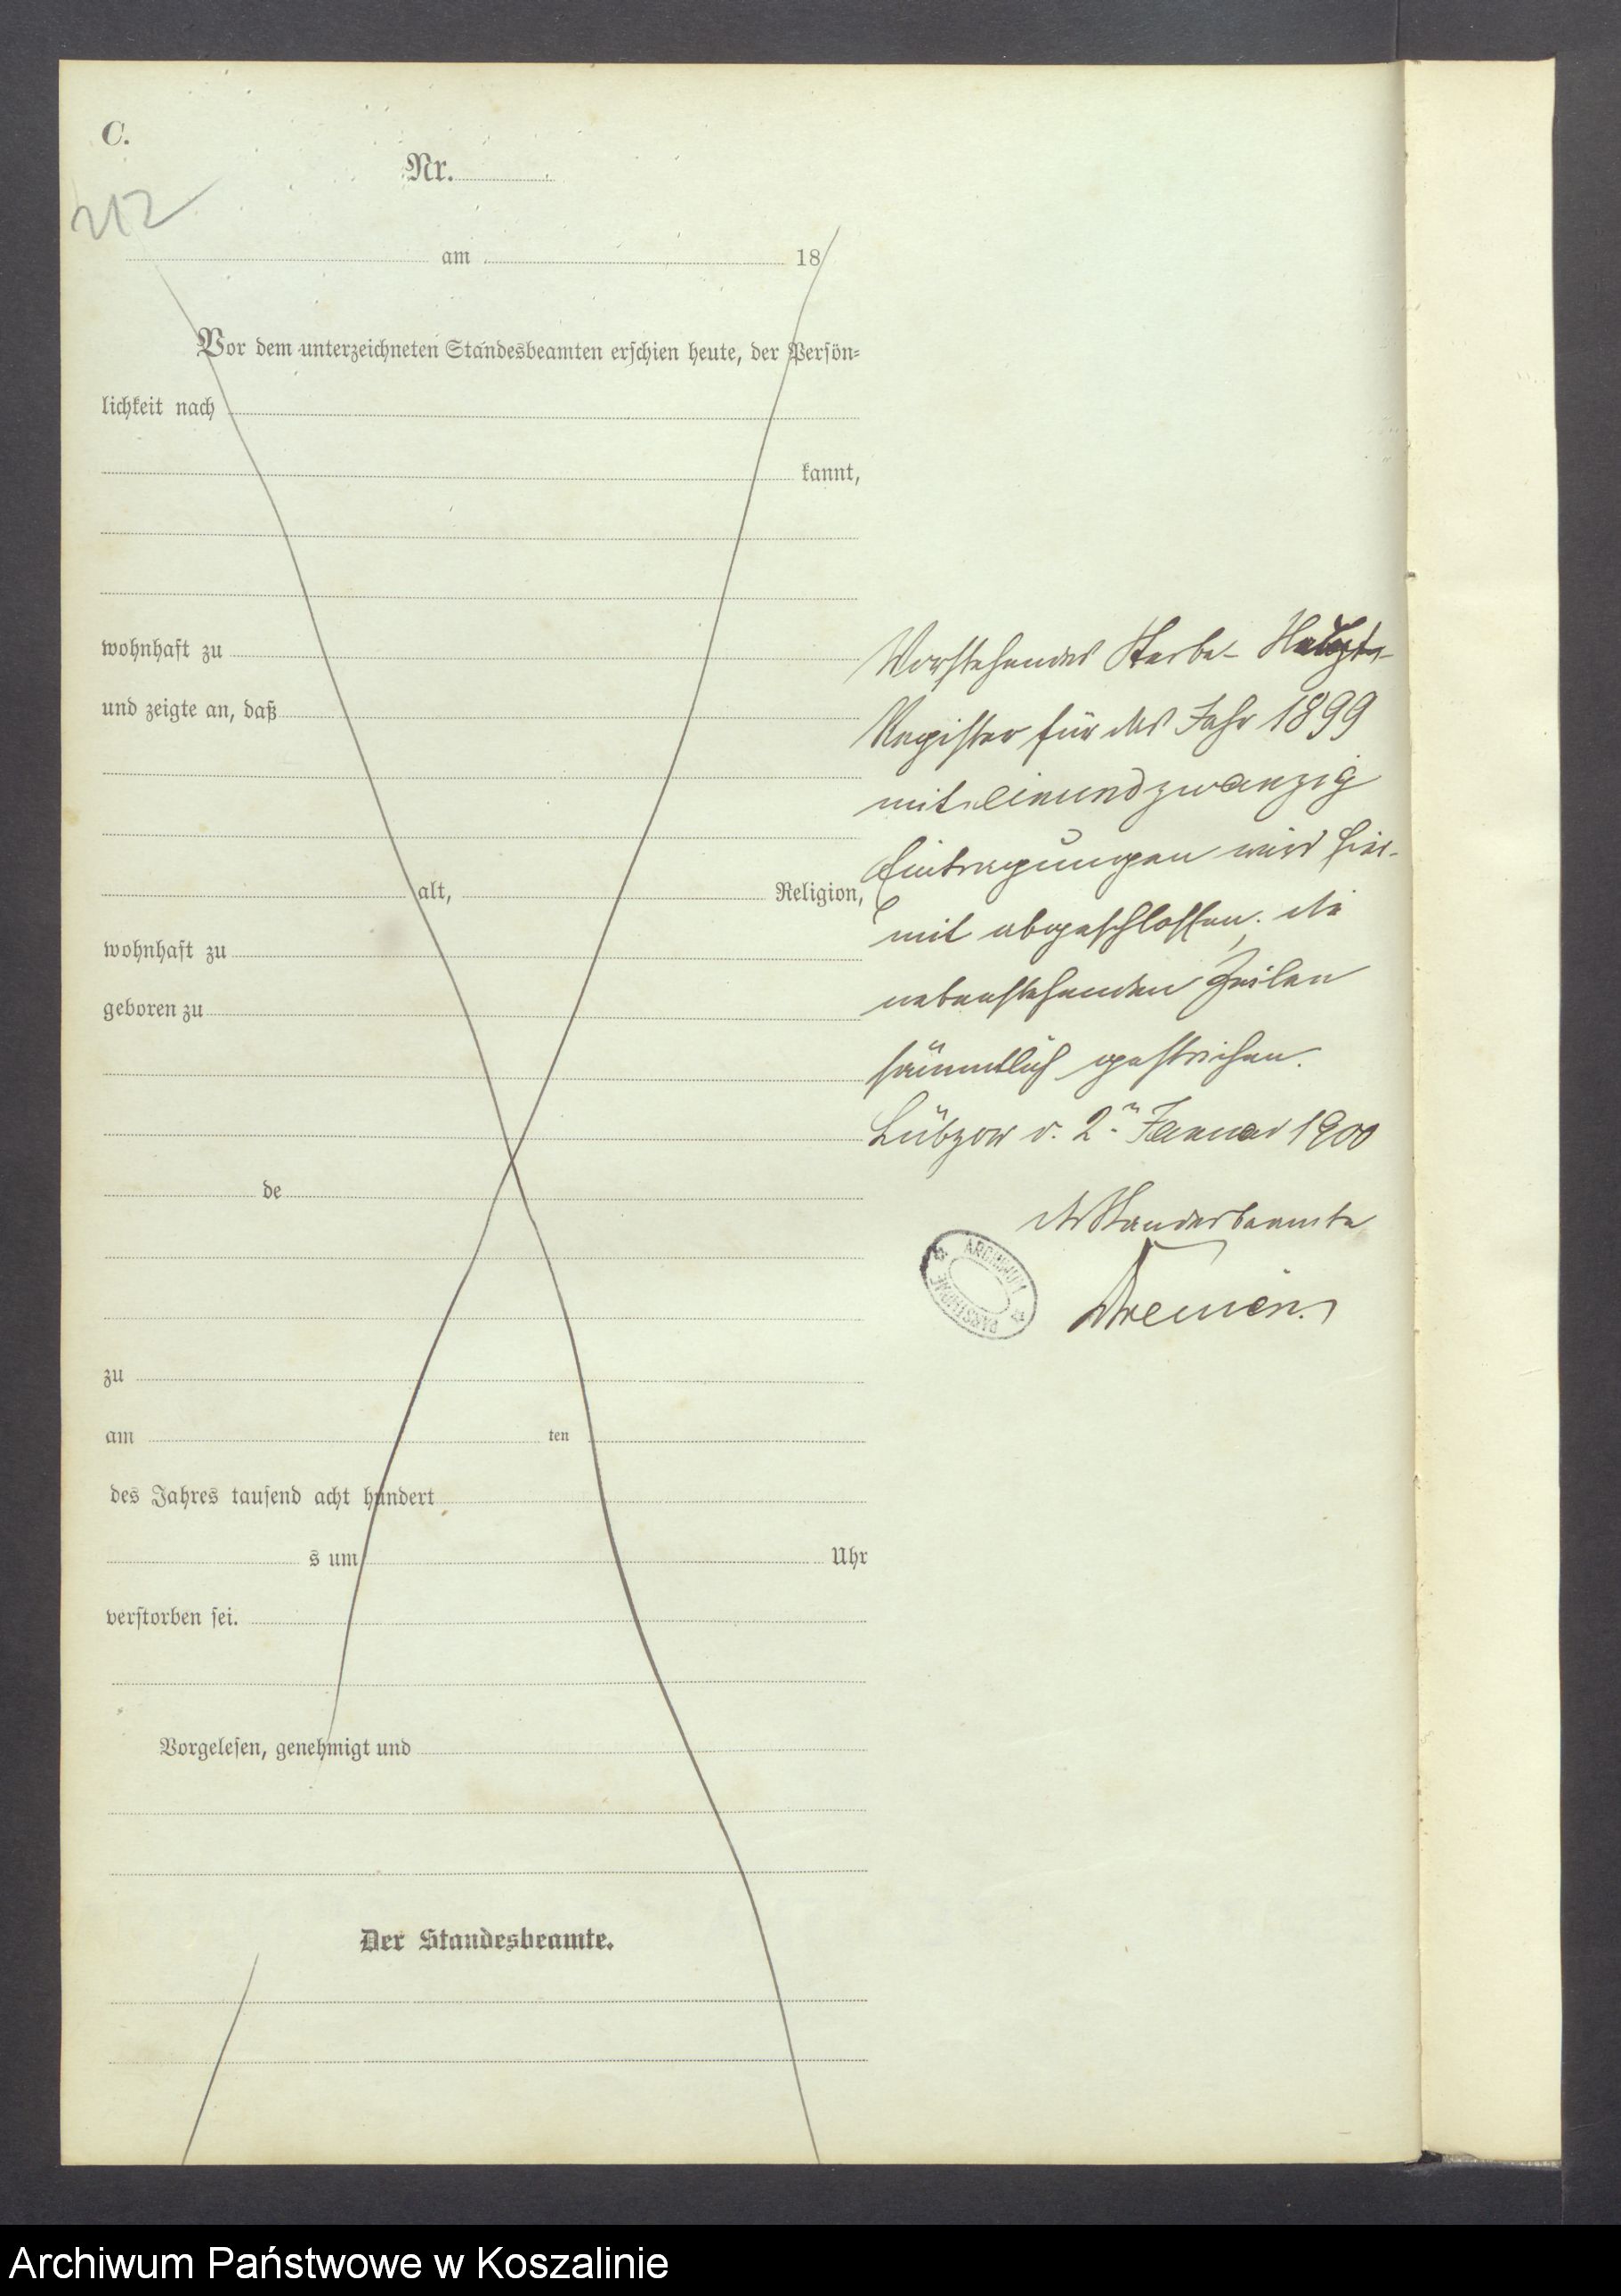 C.
Nr.
212
am 18
Vor dem unterzeichneten Standesbeamten erschien heute, der Persön-
lichkeit nach
kannt,
wohnhaft zu
und zeigte an, daß
alt, Religion,
wohnhaft zu
geboren zu
de
zu
am ten
des Jahres tausend acht hundert
s um Uhr
verstorben sei.
Vorgelesen, genehmigt und
Der Standesbeamte.
Vorstehendes Sterbe- Haupt-
Register für das Jahr 1899
mit einundzwanzig
Eintragungen wird hier-
mit abgeschlossen, die
nebenstehenden Zeilen
sämmtlich gestrichen.
Lübzow d. 2n Januar 1900
der Standesbeamte
ARCHIWUM
PAŃSTWOWE
Archiwum Państwowe w Koszalinie